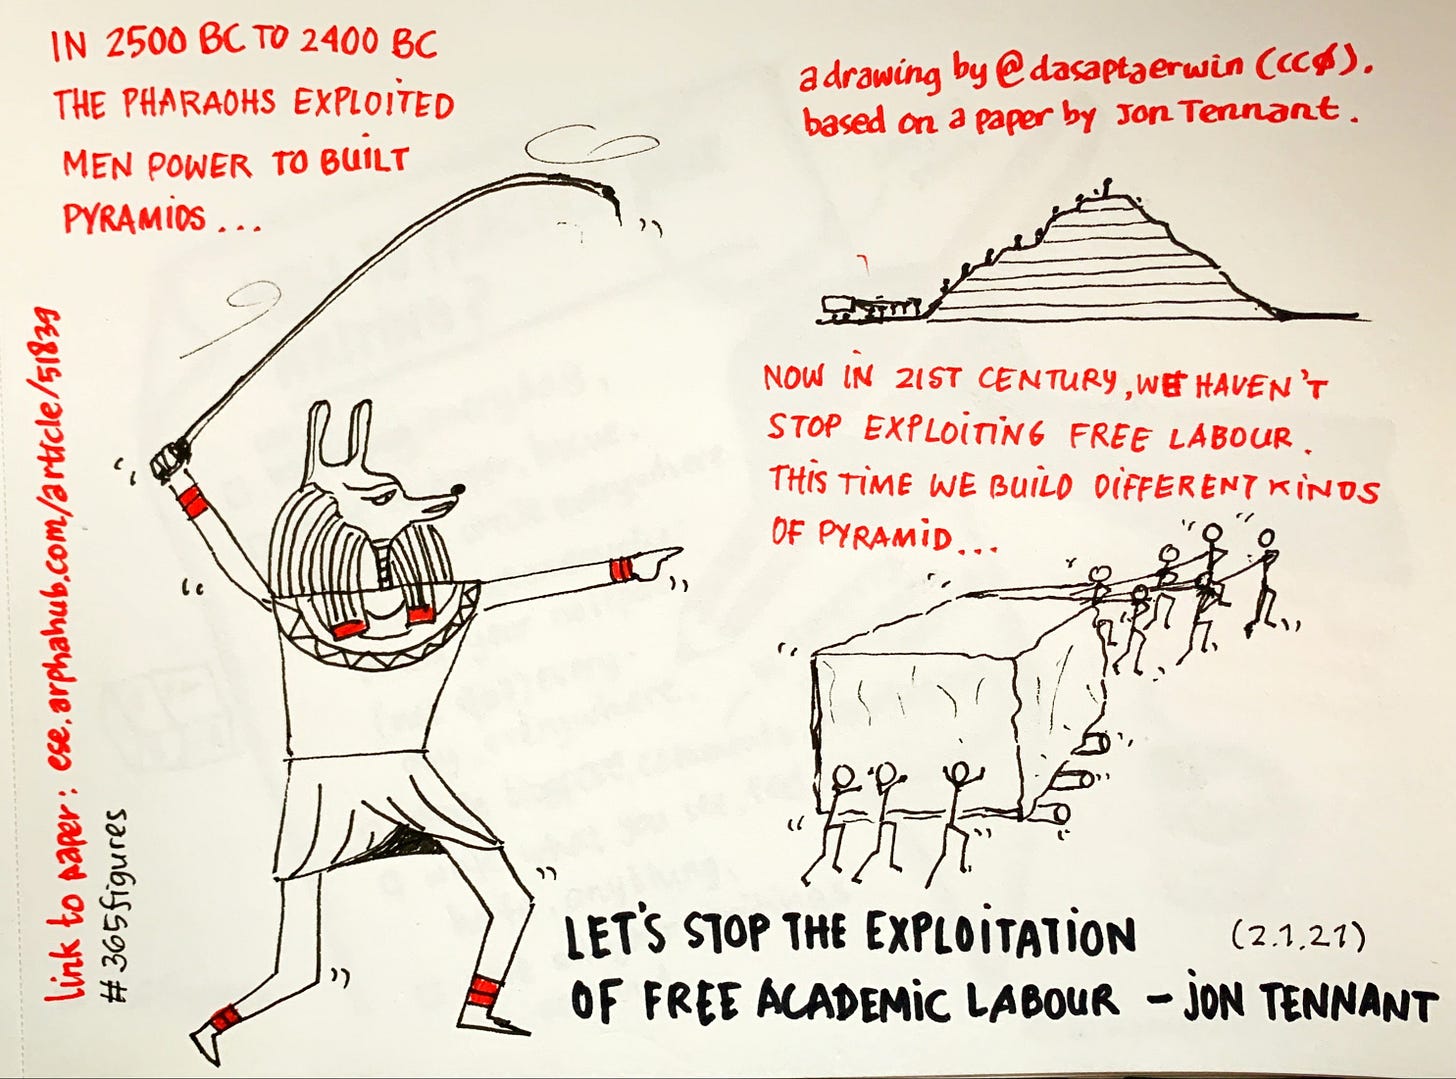 IN 2500 BC TO 2400 BC
THE PHARAOHS EXPLOITED
MEN POWER TO BUILT
PYRAMIDS...
a drawing by @dasaptaerwin (CCØ).
based on a paper by Jon Tennant.
NOW IN 21ST CENTURY, WE HAVEN'T
STOP EXPLOITING FREE LABOUR.
THIS TIME WE BUILD DIFFERENT KINDS
OF PYRAMID...
link to paper: ese.arphahub.com/article/51839
#365figures
LET'S STOP THE EXPLOITATION
(2.1.21)
OF FREE ACADEMIC LABOUR – JON TENNANT